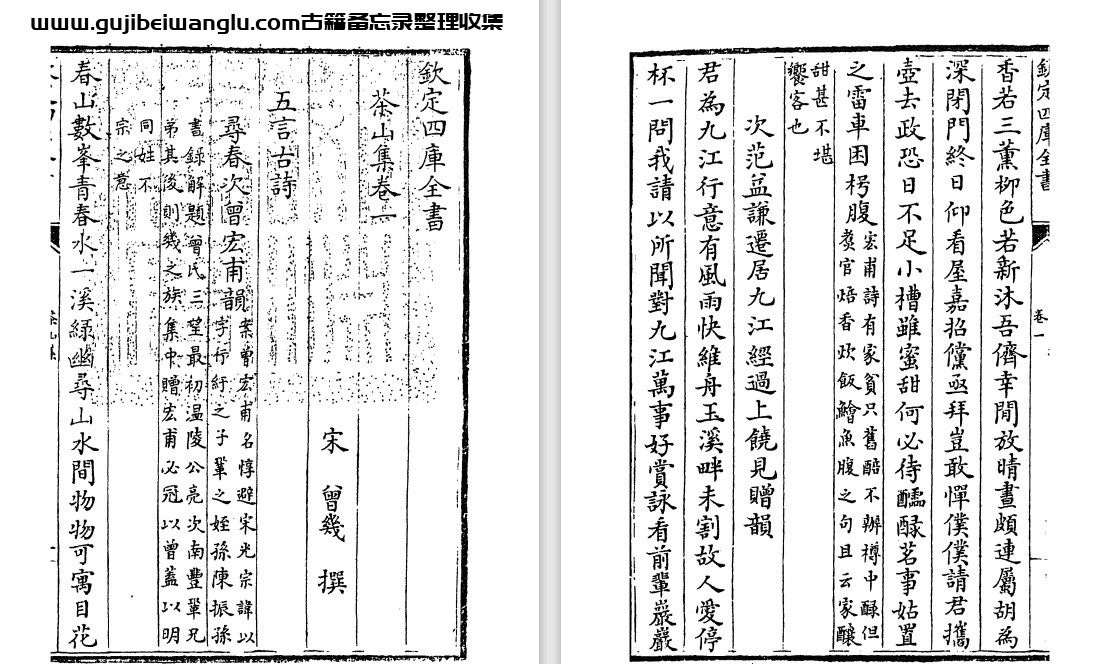 www.gujibeiwanglu.com古籍备忘录整理收集
欽定四庫全書
茶山集卷一
宋 曾幾 撰
五言古詩
尋春次曾宏甫韻
案曾宏甫名惇避宋光宗諱以
字行紆之子鞏之姪孫陳振孫
書錄解題曾氏三望最初温陵公亮次南豐鞏兄
弟其後則幾之族集中贈宏甫必冠以曾蓋以明
同姓不
宗之意
春山數峯青春水一溪綠幽尋山水間物物可寓目花
欽定四庫全書
卷一
香若三薰柳色若新沐吾儕幸閒放晴晝頗連屬胡為
深閉門終日仰看屋嘉招儻亟拜豈敢憚僕僕請君攜
壺去政恐日不足小槽雖蜜甜何必待醽醁茗事姑置
之雷車困枵腹
宏甫詩有家貧只舊醅不辦樽中醁但
煑官焙香炊飯鱠魚腹之句且云家釀
甜甚不堪
饗客也
次范益謙遷居九江經過上饒見贈韻
君為九江行意有風雨快維舟玉溪畔未割故人愛停
杯一問我請以所聞對九江萬事好賞詠看前輩巖巖